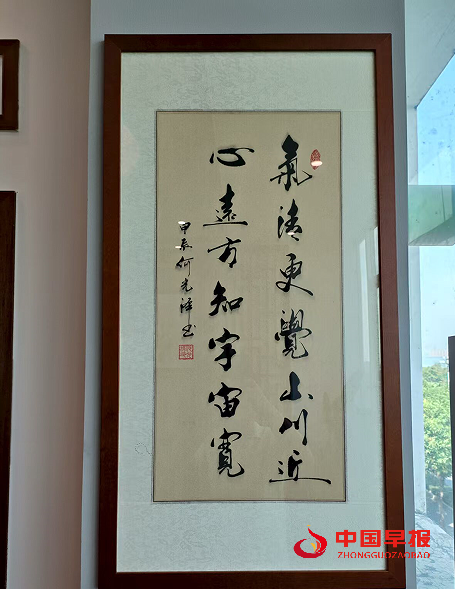 氣清更覺山川近
心遠方知宇宙寬
甲辰何光澤书
中国早报
ZHONGGUOZAOBAO